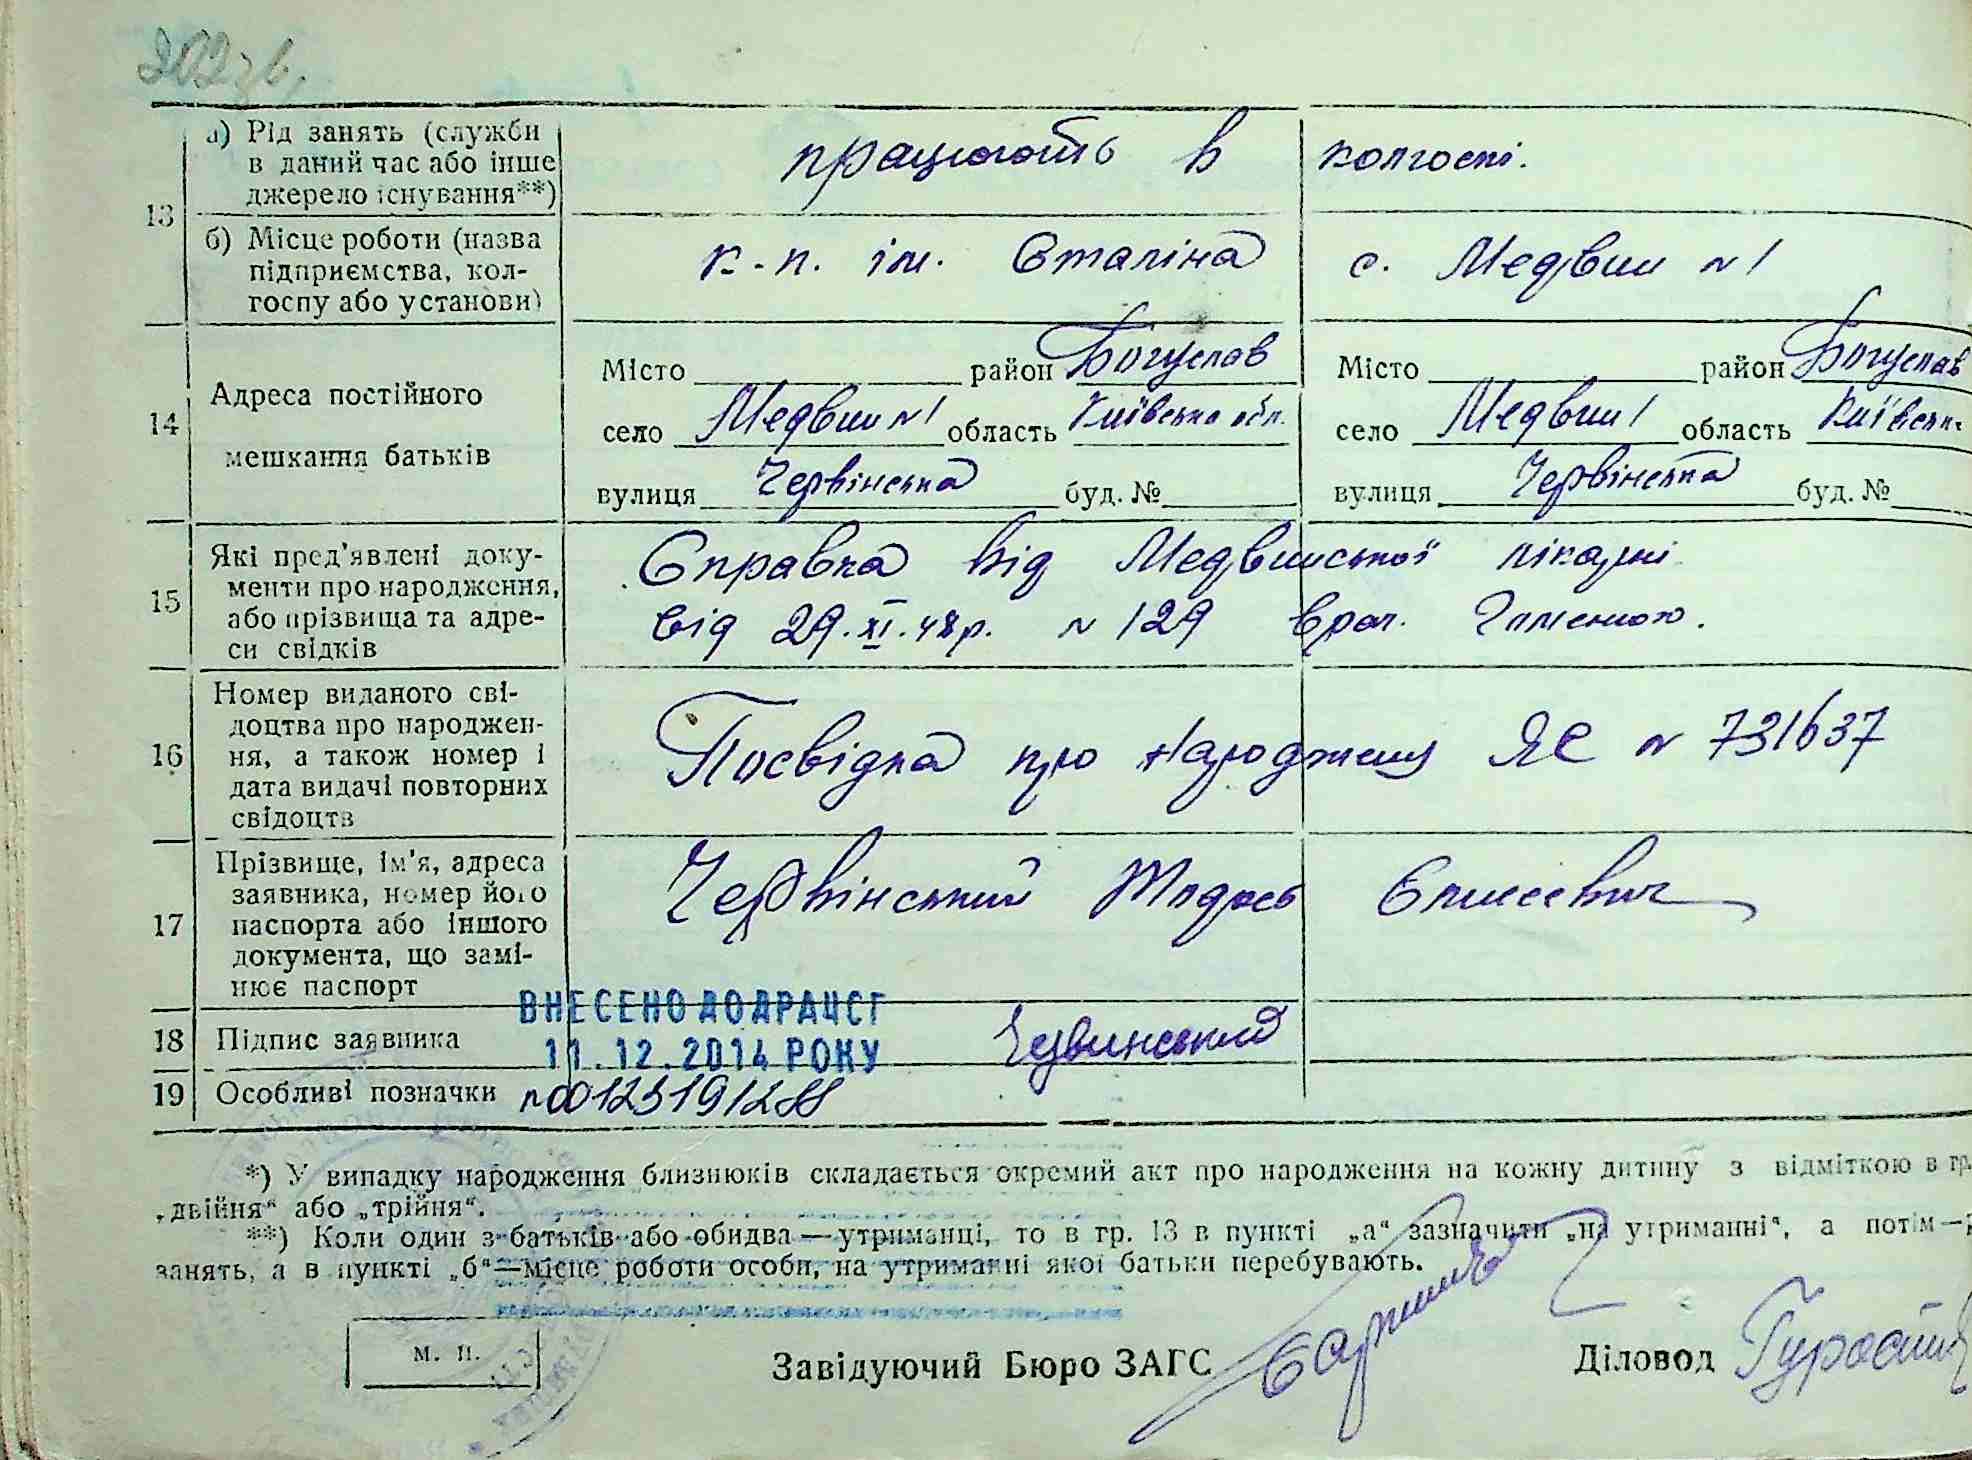 202зв.
13 а) Рід занять (служби в даний час або інше джерело існування**) працюють в колгоспі.
б) Місце роботи (назва підприємства, колгоспу або установи) к-п. ім. Сталіна с. Медвин №1
14 Адреса постійного мешкання батьків
Місто район Богуслав Місто район Богуслав
село Медвин №1 область Київська обл. село Медвин 1 область Київськ.
вулиця Червінська буд. № вулиця Червінська буд. №
15 Які пред'явлені документи про народження, або прізвища та адреси свідків
Справка від Медвинської лікарні
від 29.XI.48р. № 129 врач.
16 Номер виданого свідоцтва про народження, а також номер і дата видачі повторних свідоцтв
Посвідка про народження ЯЄ № 731637
17 Прізвище, ім'я, адреса заявника, номер його паспорта або іншого документа, що замінює паспорт
Червінський Єлисеевич
ВНЕСЕНО ДО ДРАЦСГ
18 Підпис заявника Червинський
11.12.2014 РОКУ
19 Особливі позначки n00123191288
*) У випадку народження близнюків складається окремий акт про народження на кожну дитину з відміткою в гр.
„двійня“ або „трійня“.
**) Коли один з батьків або обидва — утриманці, то в гр. 13 в пункті „а“ зазначити „на утриманні“, а потім —
занять, а в пункті „б“ — місце роботи особи, на утриманні якої батьки перебувають.
М. П.
Завідуючий Бюро ЗАГС Діловод